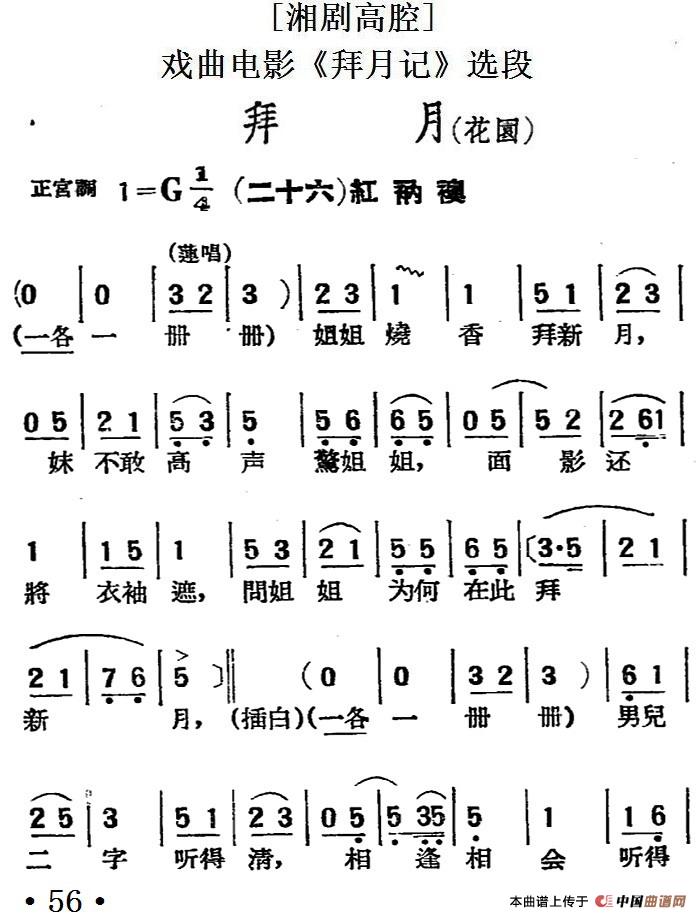 [湘剧高腔]
戏曲电影《拜月记》选段
拜 月(花園)
正宮調 1=G 1/4 (二十六)紅衲襖
(蓮唱)
(0 | 0 | 3 2 | 3 ) | 2 3 | 1 | 1 | 5 1 | 2 3 |
(一各 一 冊 冊) 姐姐 燒 香 拜新 月,
0 5 | 2 1 | 5 3 | 5 | 5 6 | 6 5 | 0 5 | 5 2 | 2 61 |
妹 不敢 高 声 驚姐 姐, 面 影 还
1 | 1 5 | 1 | 5 3 | 2 1 | 5 5 | 6 5 | 〔3·5 | 2 1 |
將 衣袖 遮, 問姐 姐 为何 在此 拜
2 1 | 7 6 | 5 〕‖ ( 0 | 0 | 3 2 | 3 ) | 6 1 |
新 月, (插白)(一各 一 冊 冊) 男兒
2 5 | 3 | 5 1 | 2 3 | 0 5 | 5 35 | 5 | 1 | 1 6 |
二 字 听得 清, 相 逢 相 会 听得
• 56 •
本曲谱上传于 中国曲谱网